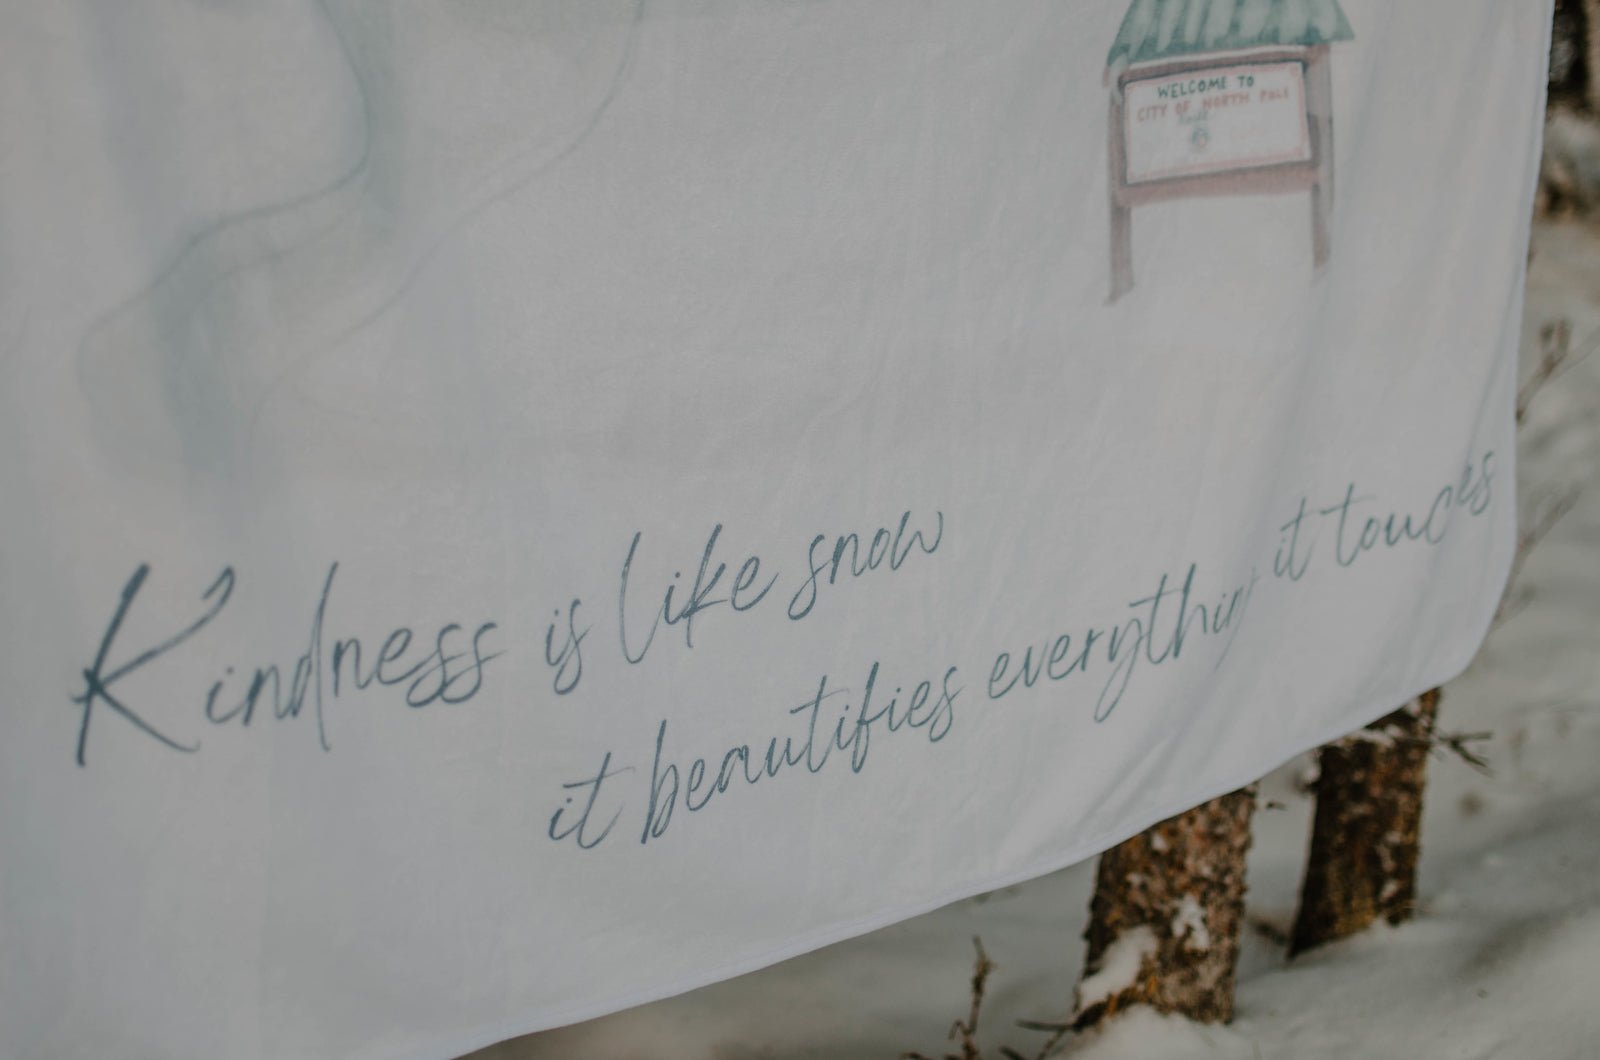 WELCOME TO
CITY OF NORTH POLE
Kindness is like snow
it beautifies everything it touches